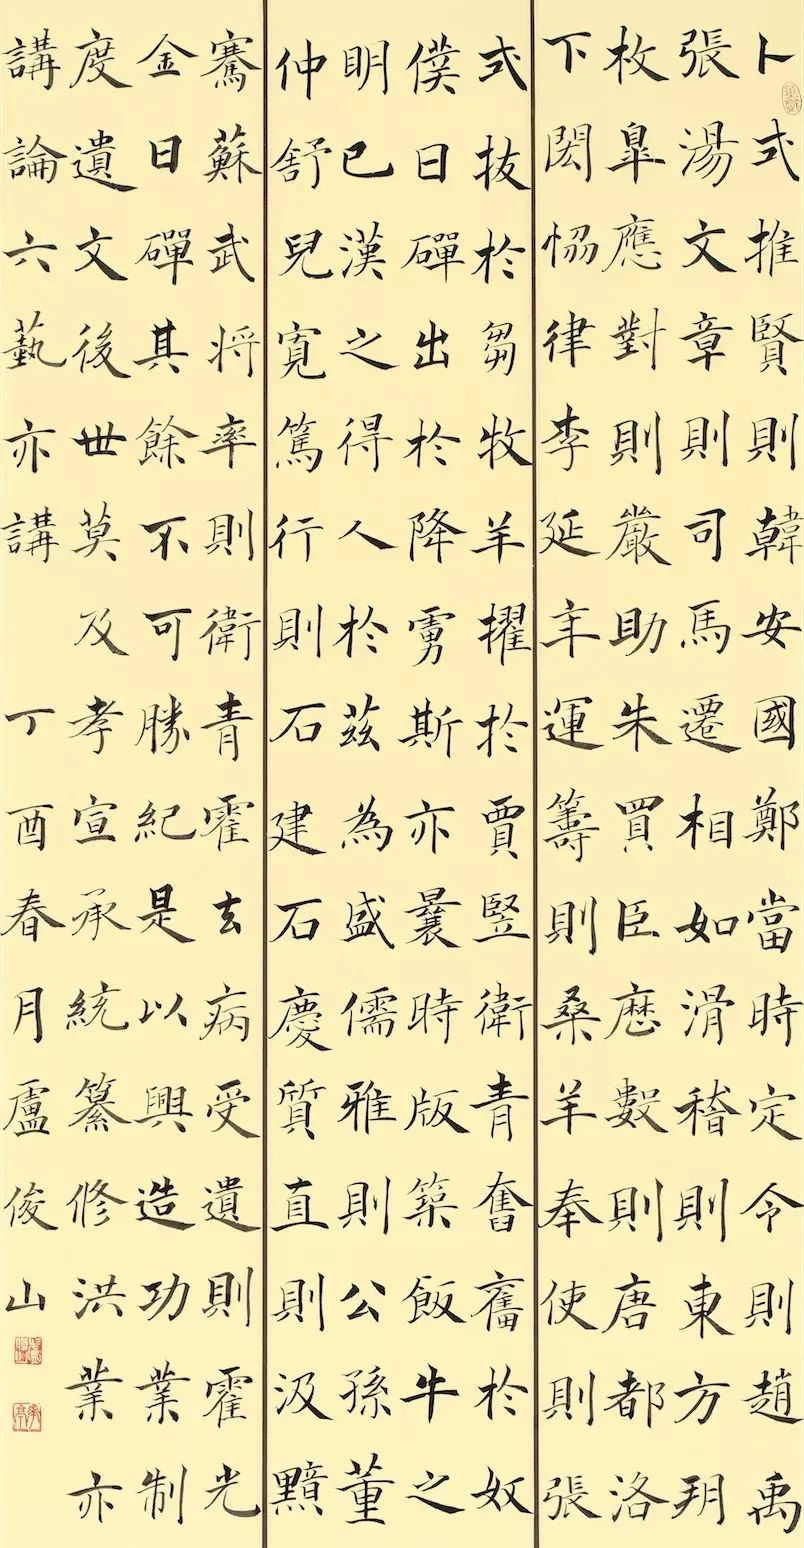 卜式推賢則韓安國鄭當時定令則趙禹
張湯文章則司馬遷相如滑稽則東方朔
枚皐應對則嚴助朱買臣厯數則唐都洛
下閎恊律李延年運籌則桑羊奉使則張
式拔於芻牧羊擢於賈豎衛青奮舊於奴
僕日磾出於降虜斯亦曩時版築飯牛之
明已漢之得人於茲為盛儒雅則公孫董
仲舒兒寬篤行則石建石慶質直則汲黯
騫蘇武将率則衛青霍去病受遺則霍光
金日磾其餘不可勝紀是以興造功業制
度遺文後世莫及孝宣承統纂修洪業亦
講論六藝亦講
丁酉春月盧俊山